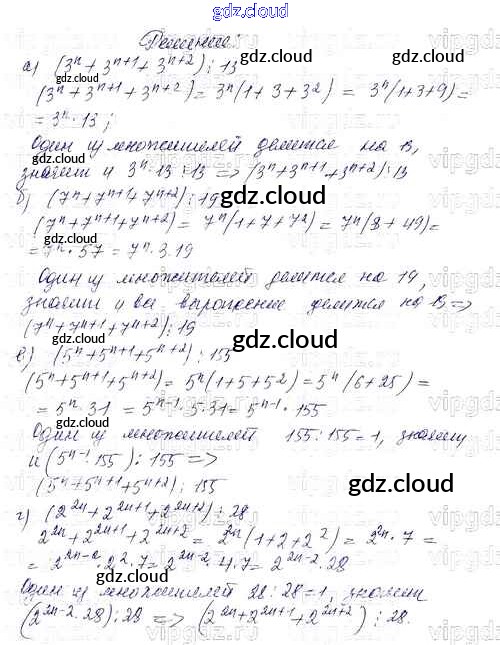 gdz.cloud
Решение:
а) (3ⁿ + 3ⁿ⁺¹ + 3ⁿ⁺²) : 13
(3ⁿ + 3ⁿ⁺¹ + 3ⁿ⁺²) = 3ⁿ(1 + 3 + 3²) = 3ⁿ(1+3+9) =
= 3ⁿ · 13 ;
Один из множителей делится на 13,
значит и 3ⁿ · 13 : 13 => (3ⁿ + 3ⁿ⁺¹ + 3ⁿ⁺²) : 13
б) (7ⁿ + 7ⁿ⁺¹ + 7ⁿ⁺²) : 19
(7ⁿ + 7ⁿ⁺¹ + 7ⁿ⁺²) = 7ⁿ(1 + 7 + 7²) = 7ⁿ(8 + 49) =
= 7ⁿ · 57 = 7ⁿ · 3 · 19
Один из множителей делится на 19,
значит и выражение делится на 19 =>
(7ⁿ + 7ⁿ⁺¹ + 7ⁿ⁺²) : 19
в) (5ⁿ + 5ⁿ⁺¹ + 5ⁿ⁺²) : 155
(5ⁿ + 5ⁿ⁺¹ + 5ⁿ⁺²) = 5ⁿ(1 + 5 + 5²) = 5ⁿ(6 + 25) =
= 5ⁿ · 31 = 5ⁿ⁻¹ · 5 · 31 = 5ⁿ⁻¹ · 155
Один из множителей 155 : 155 = 1, значит
и (5ⁿ⁻¹ · 155) : 155 =>
(5ⁿ + 5ⁿ⁺¹ + 5ⁿ⁺²) : 155
г) (2²ⁿ + 2²ⁿ⁺¹ + 2²ⁿ⁺²) : 28
2²ⁿ + 2²ⁿ⁺¹ + 2²ⁿ⁺² = 2²ⁿ(1 + 2 + 2²) = 2²ⁿ · 7 =
= 2²ⁿ⁻² · 2² · 7 = 2²ⁿ⁻² · 4 · 7 = 2²ⁿ⁻² · 28
Один из множителей 28 : 28 = 1, значит
(2²ⁿ⁻² · 28) : 28 => (2²ⁿ + 2²ⁿ⁺¹ + 2²ⁿ⁺²) : 28.